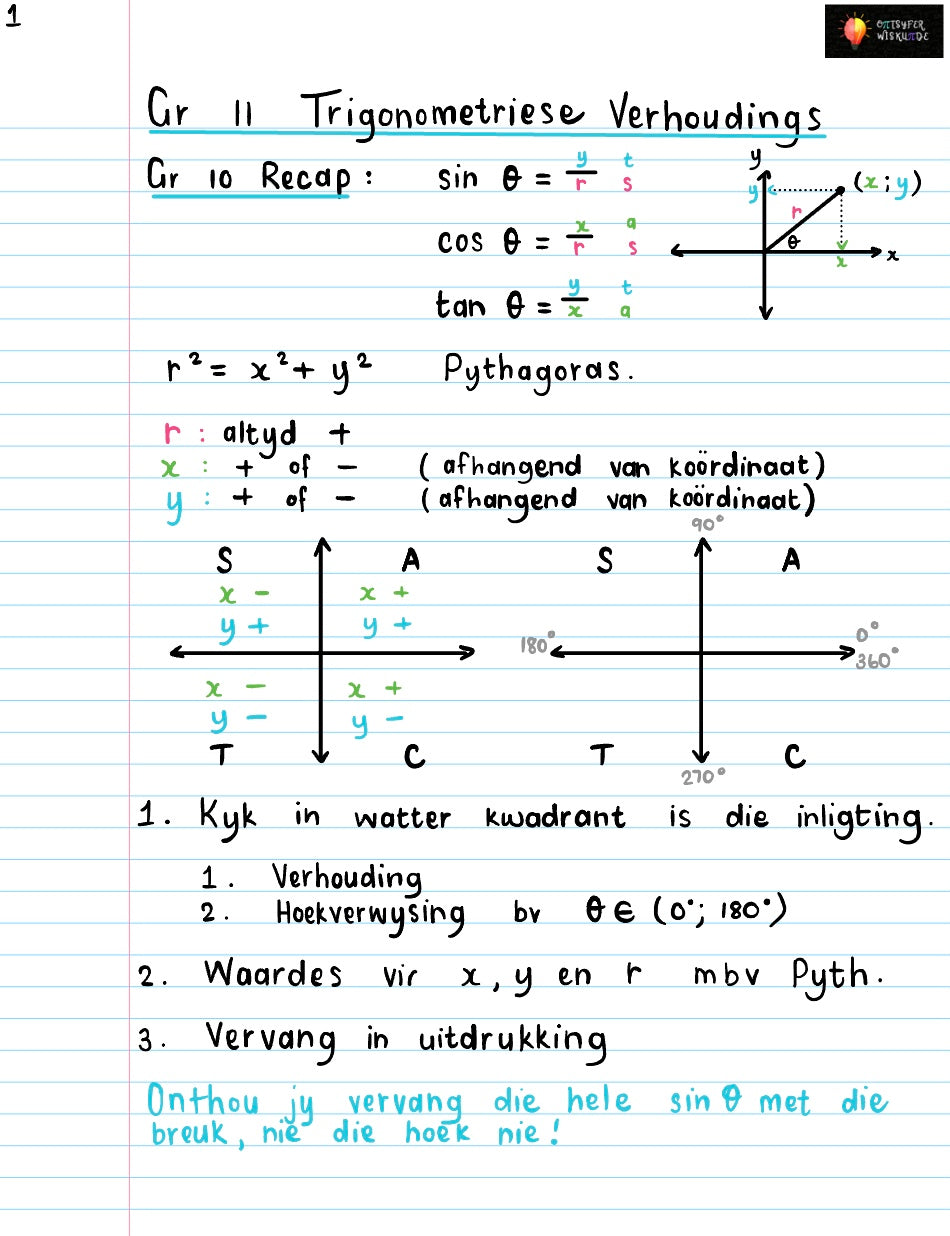 1
ONTSYFER
WISKUNDE
Gr 11 Trigonometriese Verhoudings
Gr 10 Recap: sin θ = y/r t/s
cos θ = x/r a/s
tan θ = y/x t/a
y
y (x ; y)
r
θ
x x
r² = x² + y² Pythagoras.
r : altyd +
x : + of - (afhangend van koördinaat)
y : + of - (afhangend van koördinaat)
90°
S A S A
x - x +
y + y +
180° 0°
360°
x - x +
y - y -
T C T C
270°
1. Kyk in watter kwadrant is die inligting.
1. Verhouding
2. Hoekverwysing bv θ ∈ (0°; 180°)
2. Waardes vir x, y en r mbv Pyth.
3. Vervang in uitdrukking
Onthou jy vervang die hele sin θ met die
breuk, nie die hoek nie!